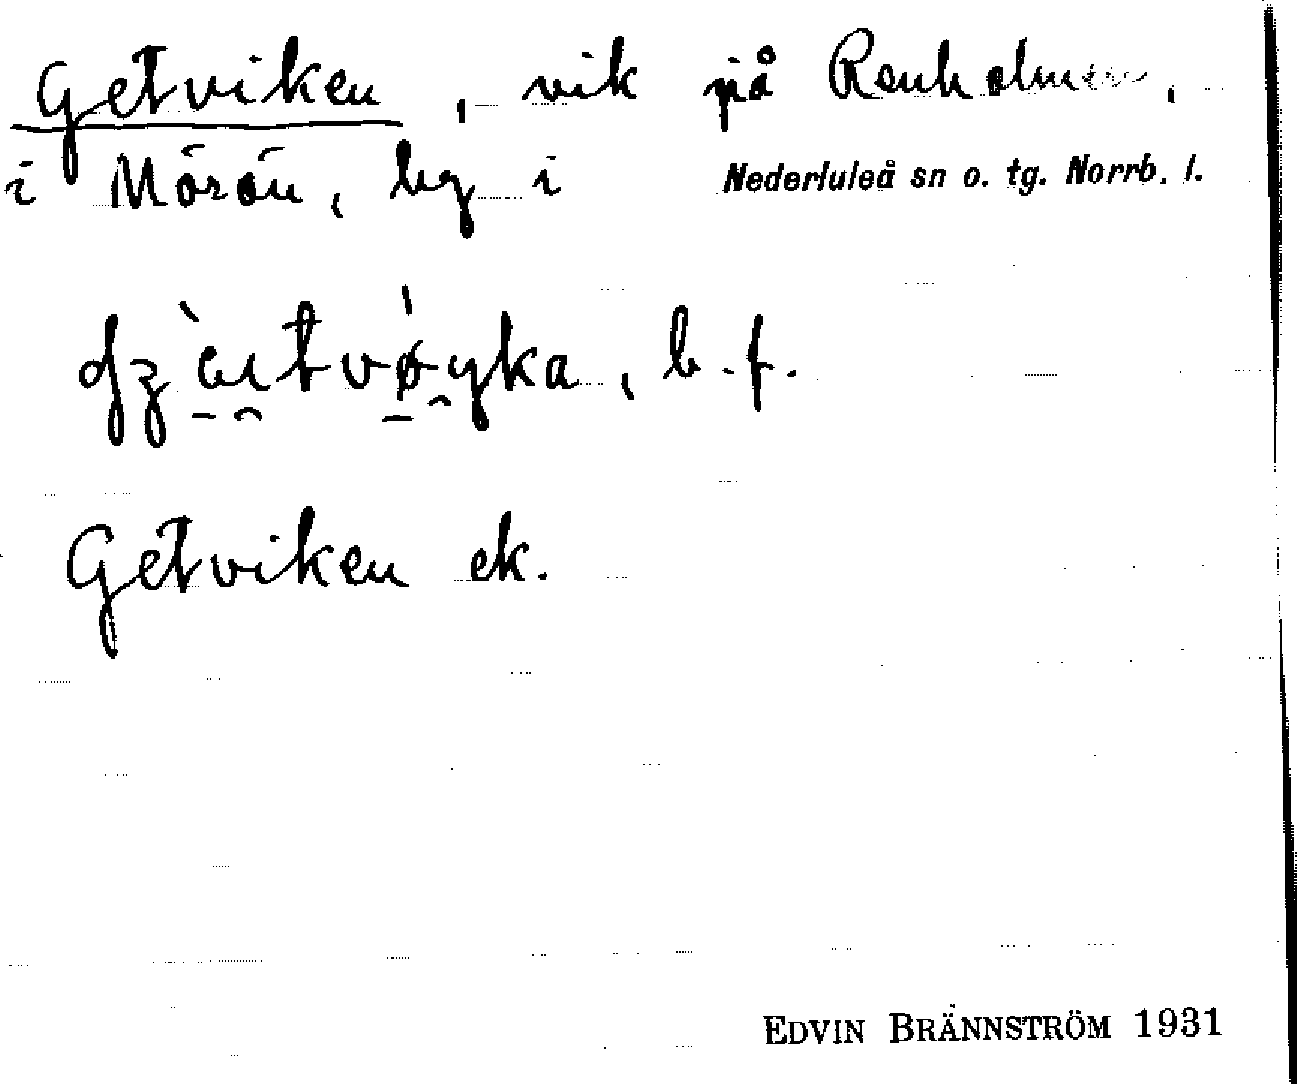 Getviken, vik på Renholmen,
i Mörön, by i Nederluleå sn o. tg. Norrb. l.
b.f.
Getviken ek.
EDVIN BRÄNNSTRÖM 1931